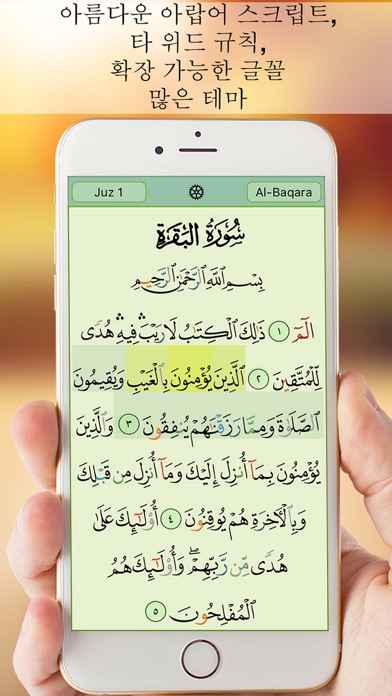 아름다운 아랍어 스크립트,
타 위드 규칙,
확장 가능한 글꼴
많은 테마
Juz 1
Al-Baqara
سُورَةُ الْبَقَرَةِ
بِسْمِ ٱللَّهِ ٱلرَّحْمَٰنِ ٱلرَّحِيمِ
الٓمٓ ١ ذَٰلِكَ ٱلْكِتَٰبُ لَا رَيْبَ ۛ فِيهِ ۛ هُدًى
لِّلْمُتَّقِينَ ٢ ٱلَّذِينَ يُؤْمِنُونَ بِٱلْغَيْبِ وَيُقِيمُونَ
ٱلصَّلَوٰةَ وَمِمَّا رَزَقْنَٰهُمْ يُنفِقُونَ ٣ وَٱلَّذِينَ
يُؤْمِنُونَ بِمَآ أُنزِلَ إِلَيْكَ وَمَآ أُنزِلَ مِن قَبْلِكَ
وَبِٱلْءَاخِرَةِ هُمْ يُوقِنُونَ ٤ أُو۟لَٰٓئِكَ عَلَىٰ
هُدًى مِّن رَّبِّهِمْ ۖ وَأُو۟لَٰٓئِكَ هُمُ
ٱلْمُفْلِحُونَ ٥